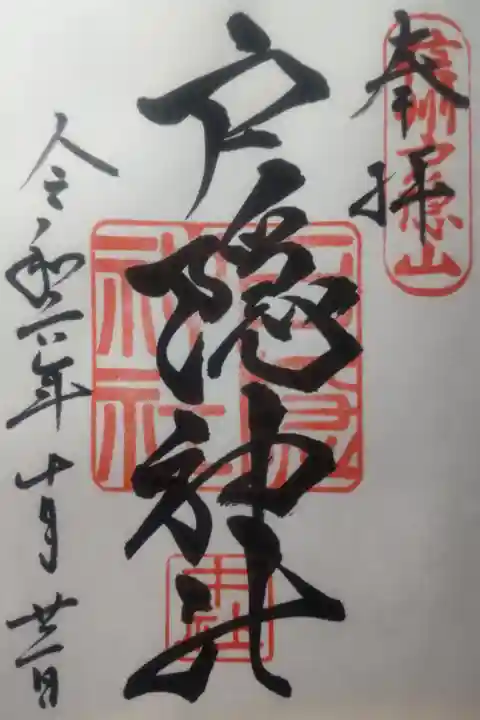 奉拝
信州戸隠山
戸隠神社
戸隠神社
中社
令和六年十月廿一日